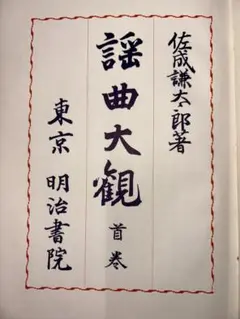 佐成謙太郎著
謡曲大觀
首巻
東京 明治書院